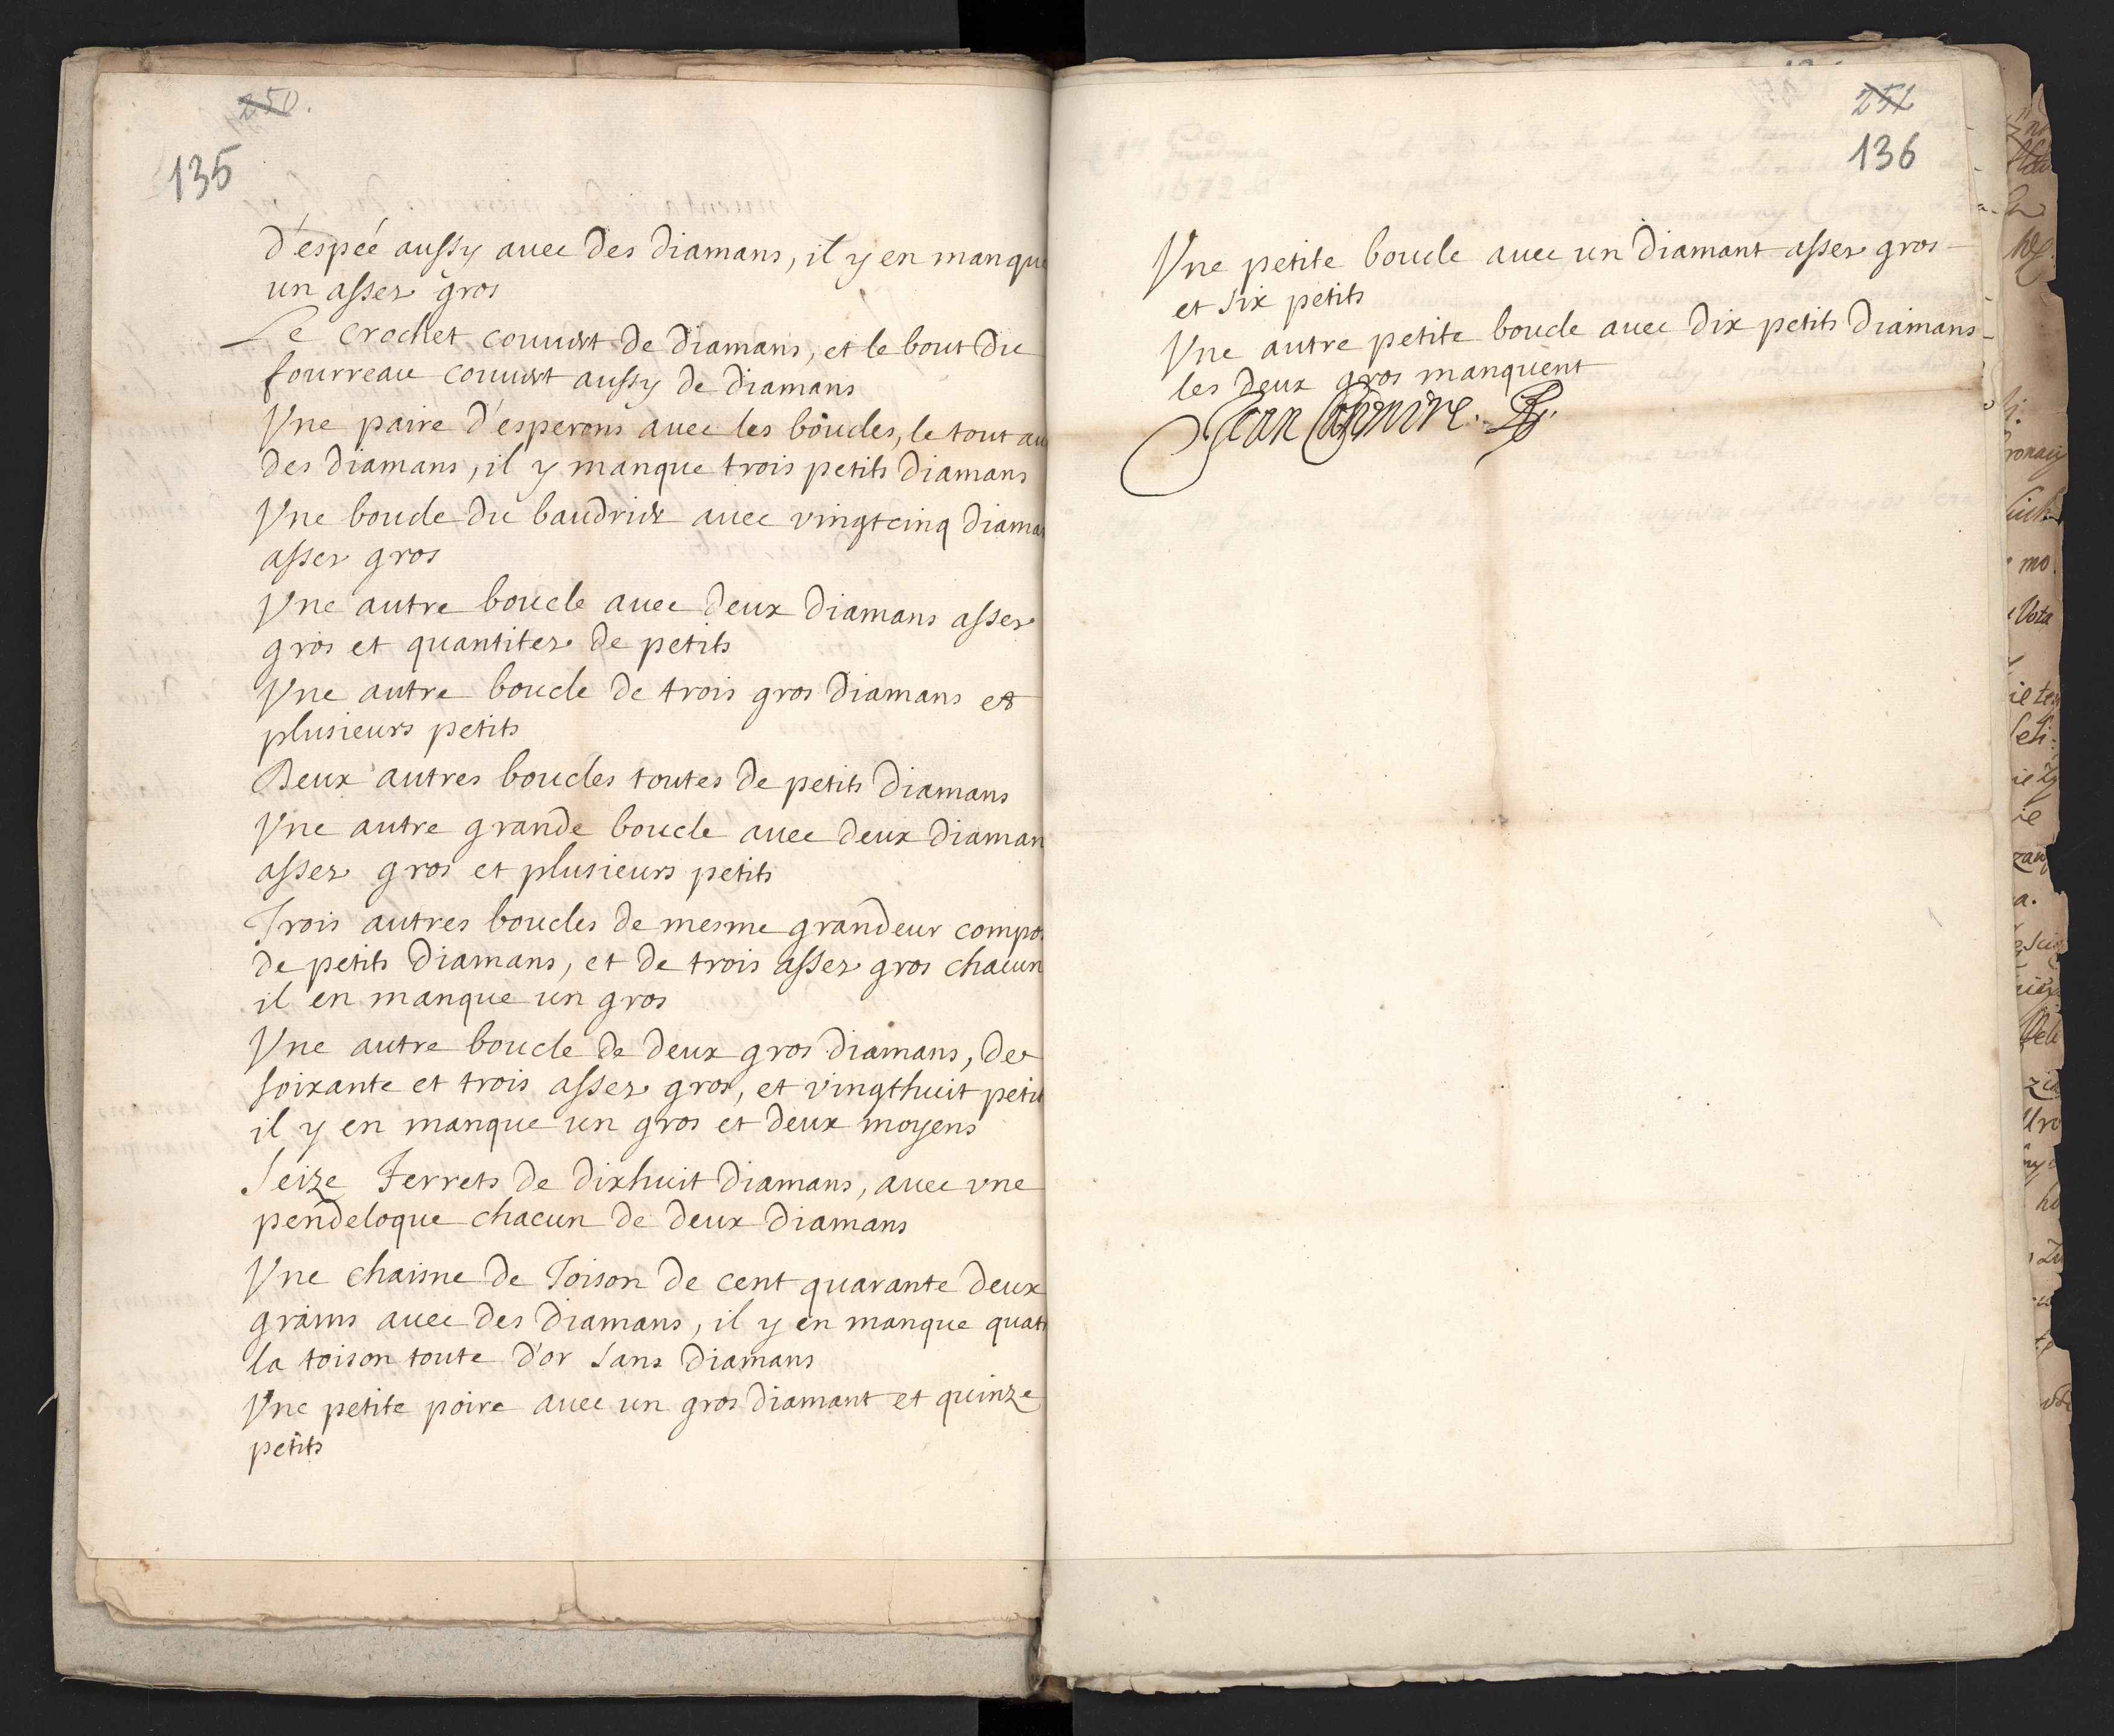 250.
135
d'espeé aussy auec des diamans, il y en manque
un assez gros
Le crochet couuert de diamans, et le bout du
fourreau couuert aussy de diamans
Vne paire d'esperons auec les boucles, le tout au
des diamans, il y manque trois petits diamans
Vne boucle du baudrier auec vingtcinq diama
assez gros
Vne autre boucle auec deux diamans assez
gros et quantitez de petits
Vne autre boucle de trois gros diamans et
plusieurs petits
Deux autres boucles toutes de petits diamans
Vne autre grande boucle auec deux diaman
assez gros et plusieurs petits
Trois autres boucles de mesme grandeur compo
de petits diamans, et de trois assez gros chacun
il en manque un gros
Vne autre boucle de deux gros diamans, de
soixante et trois assez gros, et vingthuit petit
il y en manque un gros et deux moyens
Seize Ferrets de dixhuit diamans, auec vne
pendeloque chacun de deux diamans
Vne chaisne de Toison de cent quarante deux
grains auec des diamans, il y en manque quatr
la toison toute d'or sans diamans
Vne petite poire auec un gros diamant et quinze
petits
251
136
Vne petite boucle auec un diamant assez gros
et six petits
Vne autre petite boucle auec dix petits diamans
les deux gros manquent
Jean Casimire. R.